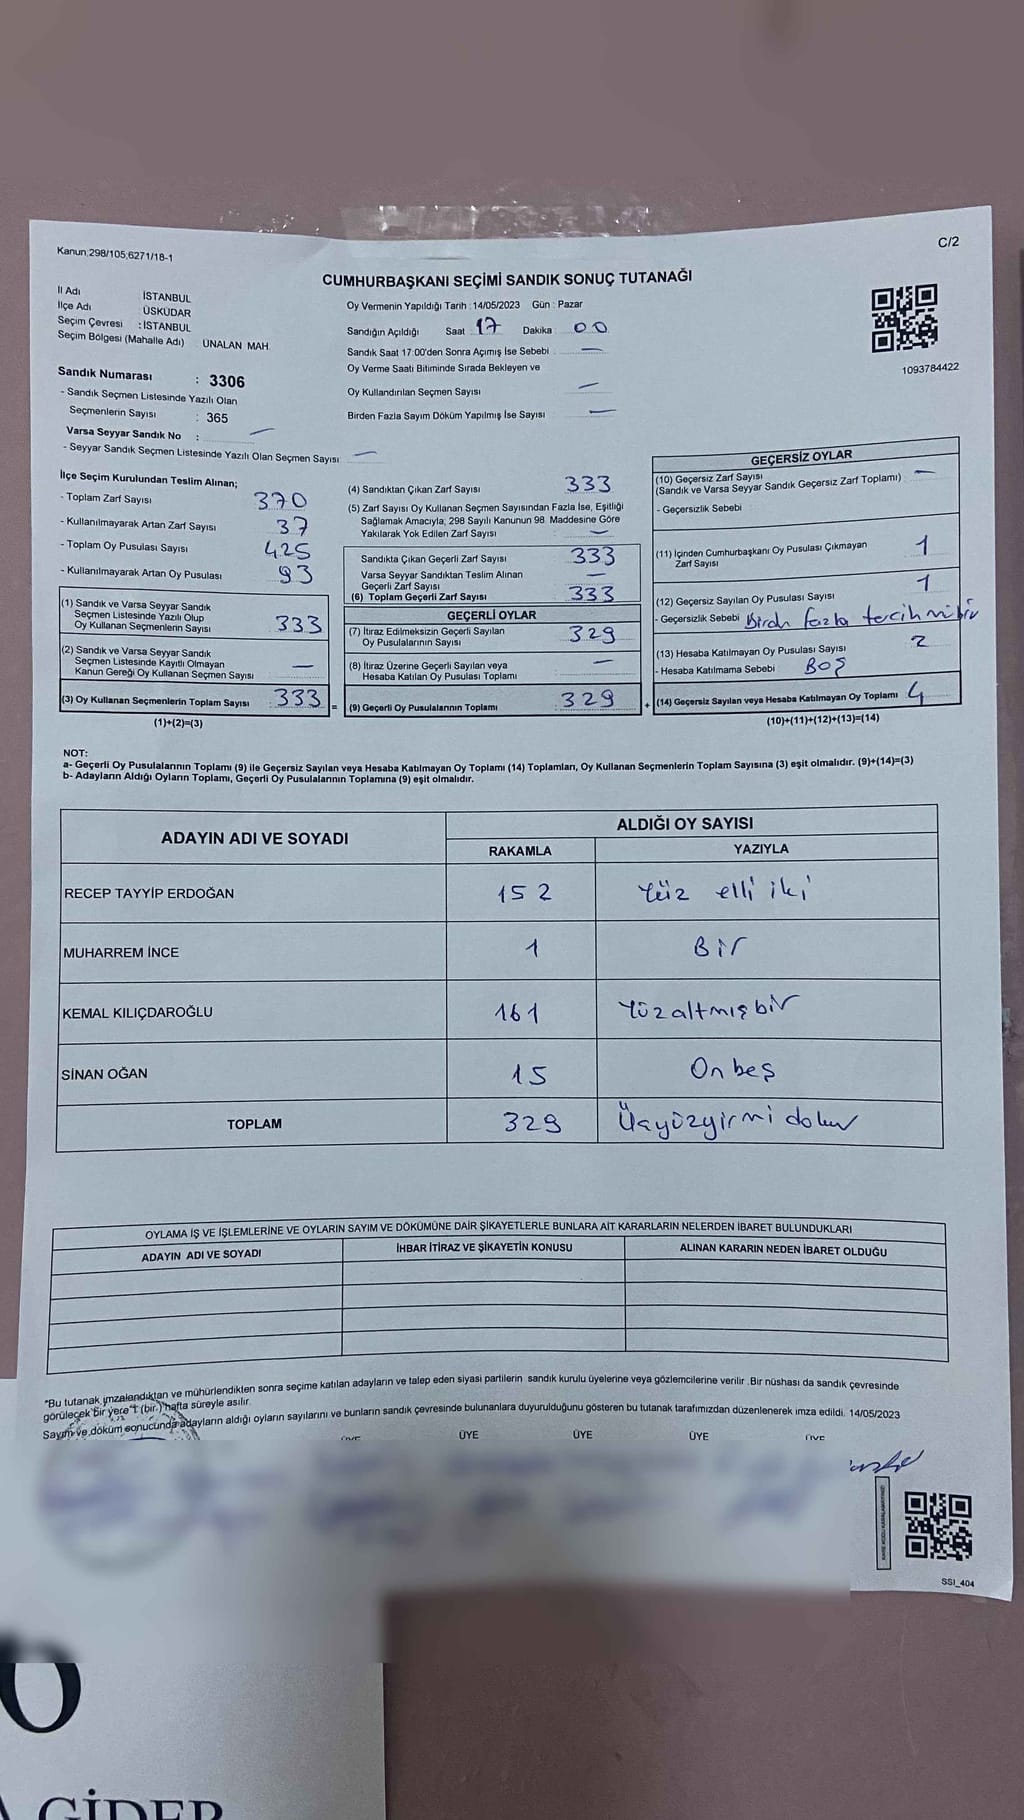 Kanun;298/105;6271/18-1
C/2
CUMHURBAŞKANI SEÇİMİ SANDIK SONUÇ TUTANAĞI
İl Adı İSTANBUL
İlçe Adı ÜSKÜDAR
Seçim Çevresi : İSTANBUL
Seçim Bölgesi (Mahalle Adı) ÜNALAN MAH.
Oy Vermenin Yapıldığı Tarih : 14/05/2023 Gün : Pazar
Sandığın Açıldığı Saat 17 Dakika 00
Sandık Saat 17:00'den Sonra Açımış İse Sebebi —
Oy Verme Saati Bitiminde Sırada Bekleyen ve
Oy Kullandırılan Seçmen Sayısı —
Birden Fazla Sayım Döküm Yapılmış İse Sayısı —
1093784422
Sandık Numarası : 3306
- Sandık Seçmen Listesinde Yazılı Olan
Seçmenlerin Sayısı : 365
Varsa Seyyar Sandık No : —
- Seyyar Sandık Seçmen Listesinde Yazılı Olan Seçmen Sayısı —
İlçe Seçim Kurulundan Teslim Alınan;
- Toplam Zarf Sayısı 370
- Kullanılmayarak Artan Zarf Sayısı 37
- Toplam Oy Pusulası Sayısı 425
- Kullanılmayarak Artan Oy Pusulası 93
(1) Sandık ve Varsa Seyyar Sandık
Seçmen Listesinde Yazılı Olup
Oy Kullanan Seçmenlerin Sayısı 333
(2) Sandık ve Varsa Seyyar Sandık
Seçmen Listesinde Kayıtlı Olmayan
Kanun Gereği Oy Kullanan Seçmen Sayısı —
(3) Oy Kullanan Seçmenlerin Toplam Sayısı 333 =
(1)+(2)=(3)
(4) Sandıktan Çıkan Zarf Sayısı 333
(5) Zarf Sayısı Oy Kullanan Seçmen Sayısından Fazla İse, Eşitliği
Sağlamak Amacıyla; 298 Sayılı Kanunun 98. Maddesine Göre
Yakılarak Yok Edilen Zarf Sayısı —
Sandıkta Çıkan Geçerli Zarf Sayısı 333
Varsa Seyyar Sandıktan Teslim Alınan
Geçerli Zarf Sayısı —
(6) Toplam Geçerli Zarf Sayısı 333
GEÇERLİ OYLAR
(7) İtiraz Edilmeksizin Geçerli Sayılan
Oy Pusulalarının Sayısı 329
(8) İtiraz Üzerine Geçerli Sayılan veya
Hesaba Katılan Oy Pusulası Toplamı —
(9) Geçerli Oy Pusulalarının Toplamı 329 +
GEÇERSİZ OYLAR
(10) Geçersiz Zarf Sayısı
(Sandık ve Varsa Seyyar Sandık Geçersiz Zarf Toplamı) —
- Geçersizlik Sebebi
(11) İçinden Cumhurbaşkanı Oy Pusulası Çıkmayan
Zarf Sayısı 1
(12) Geçersiz Sayılan Oy Pusulası Sayısı 1
- Geçersizlik Sebebi Birden fazla tercih mühür
(13) Hesaba Katılmayan Oy Pusulası Sayısı 2
- Hesaba Katılmama Sebebi BOŞ
(14) Geçersiz Sayılan veya Hesaba Katılmayan Oy Toplamı 4
(10)+(11)+(12)+(13)=(14)
NOT:
a- Geçerli Oy Pusulalarının Toplamı (9) ile Geçersiz Sayılan veya Hesaba Katılmayan Oy Toplamı (14) Toplamları, Oy Kullanan Seçmenlerin Toplam Sayısına (3) eşit olmalıdır. (9)+(14)=(3)
b- Adayların Aldığı Oyların Toplamı, Geçerli Oy Pusulalarının Toplamına (9) eşit olmalıdır.
ADAYIN ADI VE SOYADI ALDIĞI OY SAYISI
RAKAMLA YAZIYLA
RECEP TAYYİP ERDOĞAN 152 Yüz elli iki
MUHARREM İNCE 1 Bir
KEMAL KILIÇDAROĞLU 161 Yüzaltmışbir
SİNAN OĞAN 15 On beş
TOPLAM 329 Üçyüzyirmi dokuz
OYLAMA İŞ VE İŞLEMLERİNE VE OYLARIN SAYIM VE DÖKÜMÜNE DAİR ŞİKAYETLERLE BUNLARA AİT KARARLARIN NELERDEN İBARET BULUNDUKLARI
ADAYIN ADI VE SOYADI İHBAR İTİRAZ VE ŞİKAYETİN KONUSU ALINAN KARARIN NEDEN İBARET OLDUĞU
*Bu tutanak imzalandıktan ve mühürlendikten sonra seçime katılan adayların ve talep eden siyasi partilerin sandık kurulu üyelerine veya gözlemcilerine verilir .Bir nüshası da sandık çevresinde
görülecek bir yere 1 (bir) hafta süreyle asılır.
Sayım ve döküm sonucunda adayların aldığı oyların sayılarını ve bunların sandık çevresinde bulunanlara duyurulduğunu gösteren bu tutanak tarafımızdan düzenlenerek imza edildi. 14/05/2023
ÜYE ÜYE ÜYE ÜYE ÜYE
SSI_404
GİDER